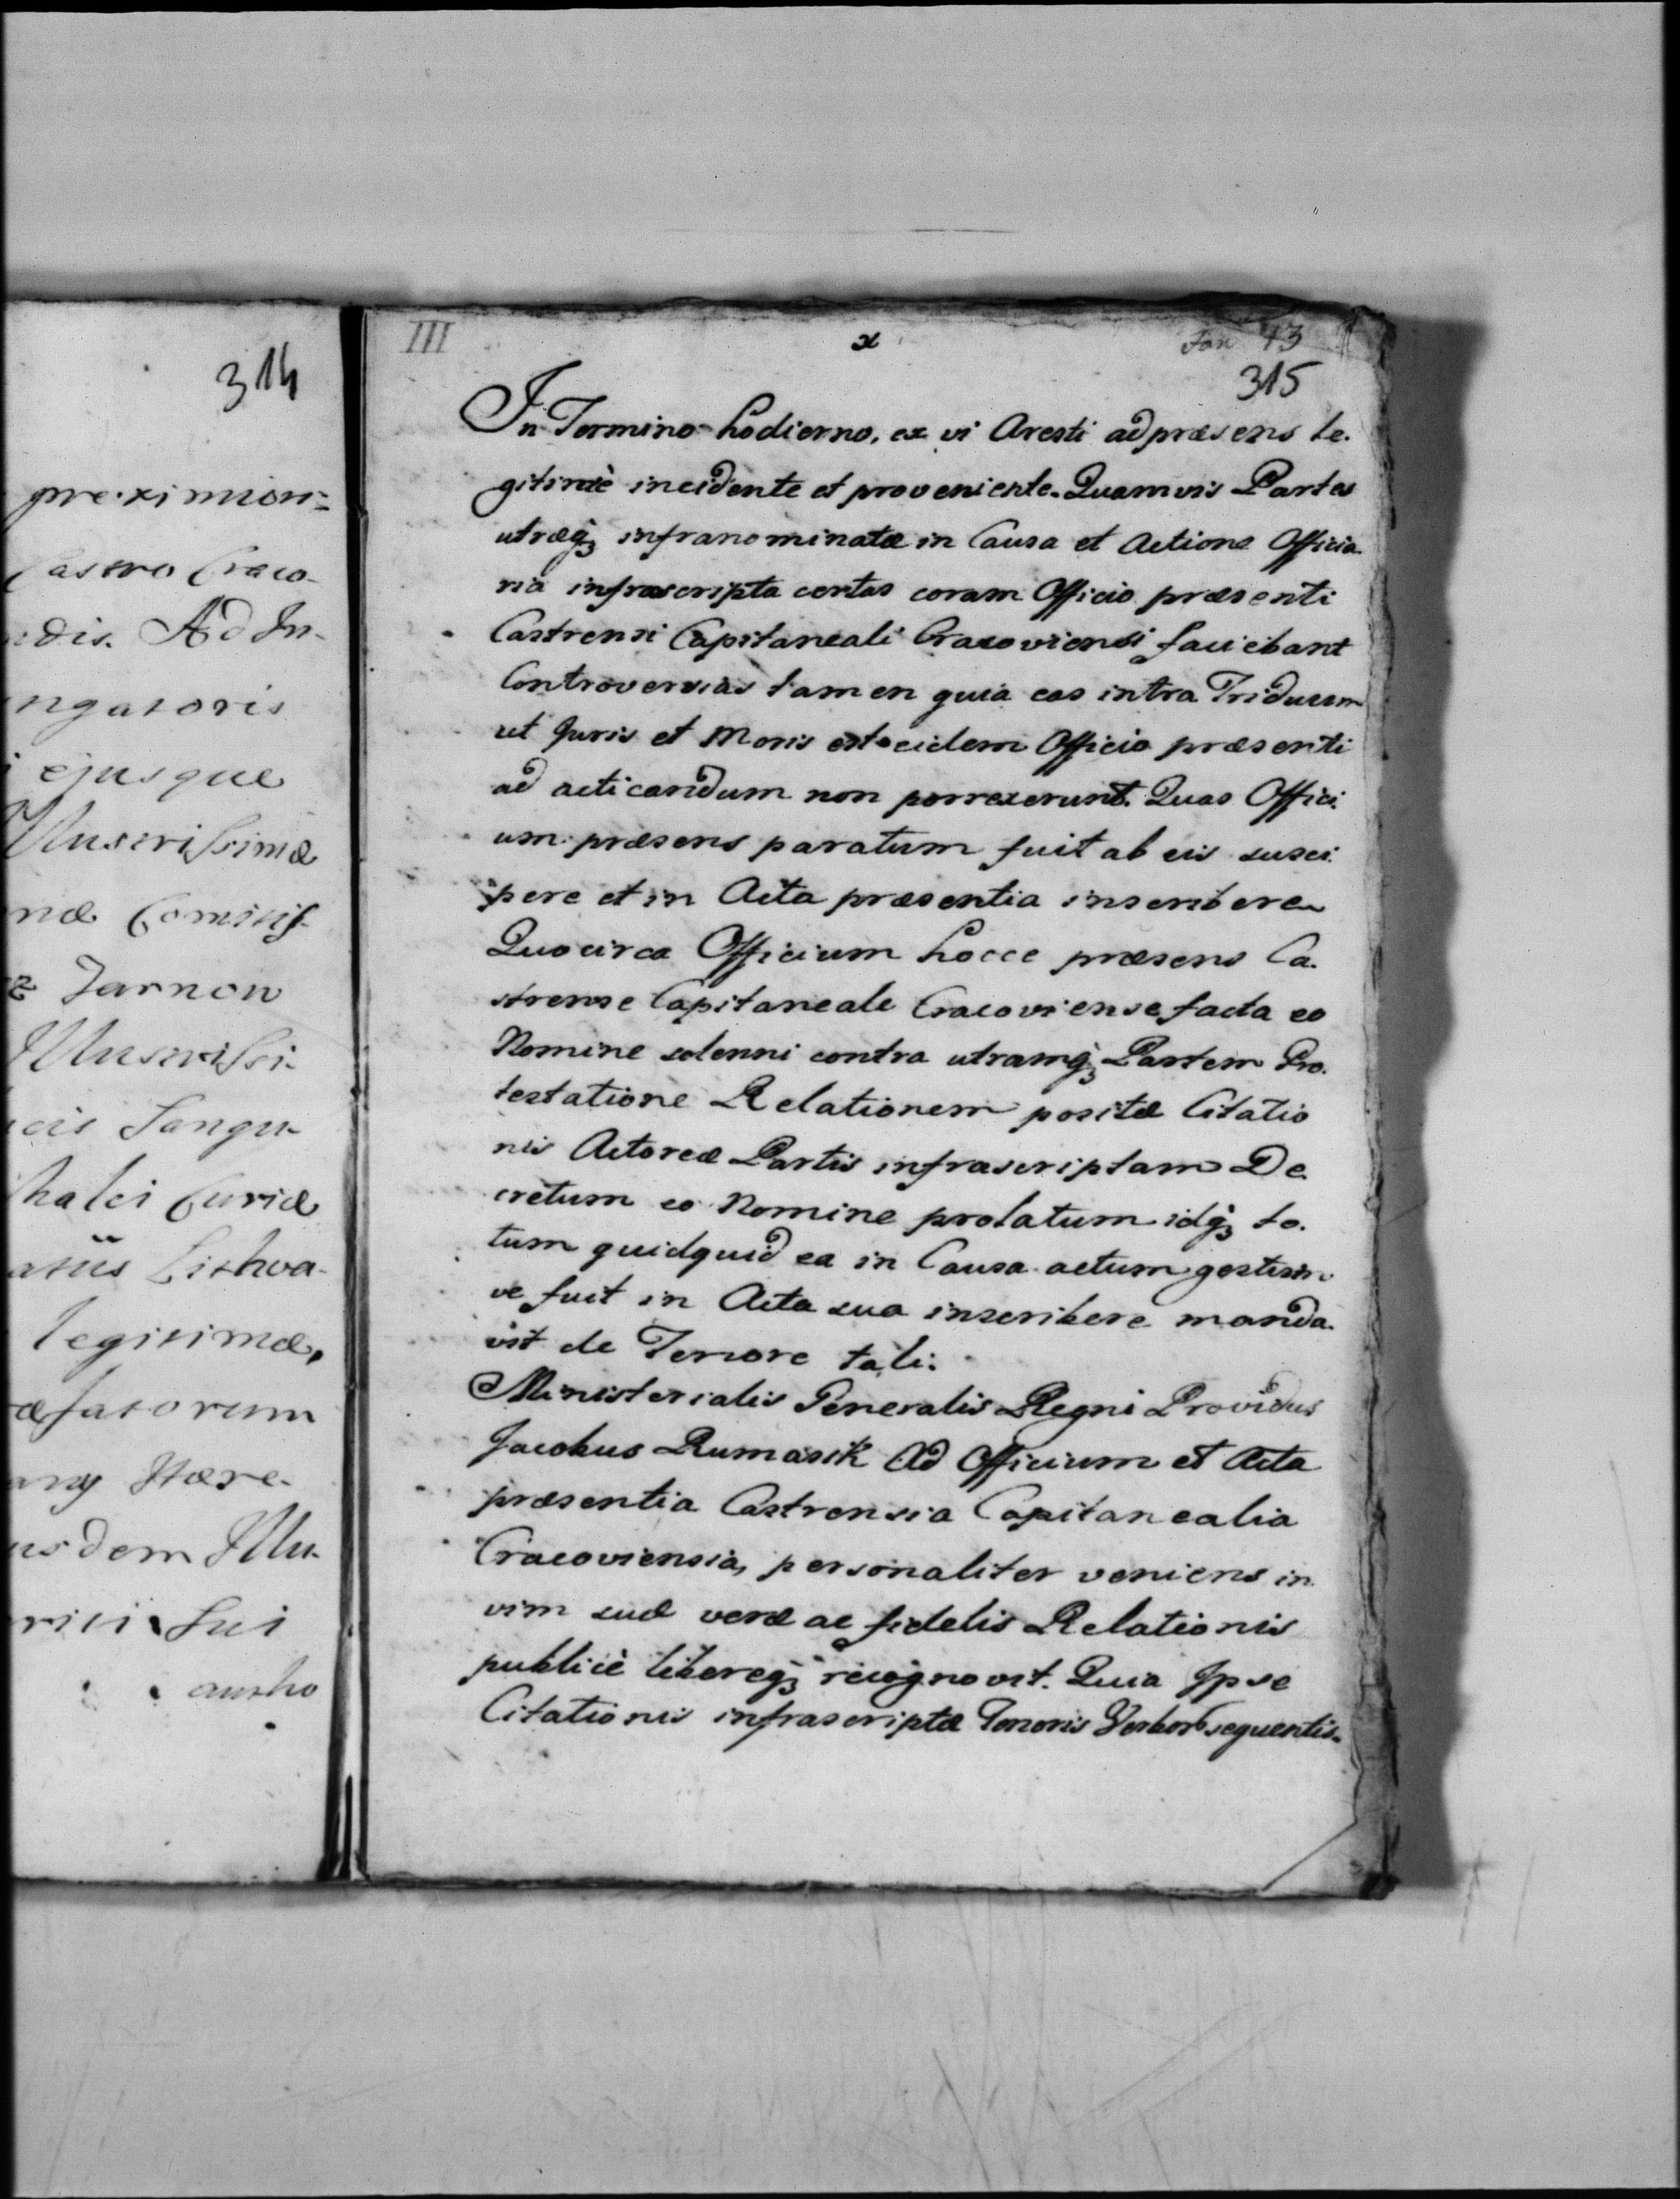 314
proximiori=
Castro Craco-
Ad In-
ngatoris
ejusque
Illustrissimæ
næ Comitis-
z Tarnow
Illustrissi-
cis Sangu-
halci Curiæ
Lithva-
legitimæ,
æfatorum
Hære-
usdem Illu-
sui
autho
III
x
Jan 13
315
In Termino hodierno, ex vi Aresti ad præsens le-
gitimè incidente et proveniente. Quamvis Partes
utræq; infranominatæ in Causa et Actione Officio
ria infrascripta certas coram Officio præsenti
Castrensi Capitaneali Cracoviensi faciebant
Controversias tamen quia eas intra Triduum
ut Juris et Moris est eidem Officio præsenti
ad acticandum non porrexerunt. Quas Offici
um præsens paratum fuit ab eis susci
pere et in Acta præsentia inscribere
Quocirca Officium hocce præsens Ca-
strense Capitaneale Cracoviense facta eo
Nomine solenni contra utramq; Partem Pro-
testatione Relationem positæ Citatio
nis Actoreæ Partis infrascriptam De
cretum eo Nomine prolatum idq; to-
tum quidquid ea in Causa actum gestum
ve fuit in Acta sua inscribere manda-
vit de Tenore tali:
Ministerialis Generalis Regni Providus
Jacobus Rumasik Ad Officium et Acta
præsentia Castrensia Capitanealia
Cracoviensia, personaliter veniens in
vim suæ veræ ac fidelis Relationis
publicè libereq; recognovit. Quia Ipse
Citationis infrascriptæ Tenoris sequentis.